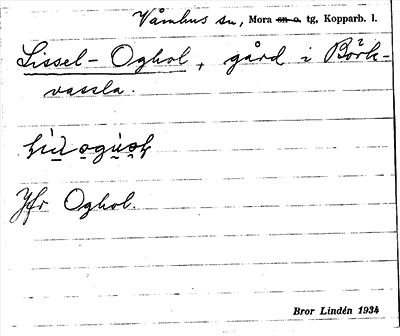 Våmhus sn, Mora sn o. tg, Kopparb. l.
Lissel-Oghol, gård i Börk-
vassla.
Jfr Oghol.
Bror Lindén 1934